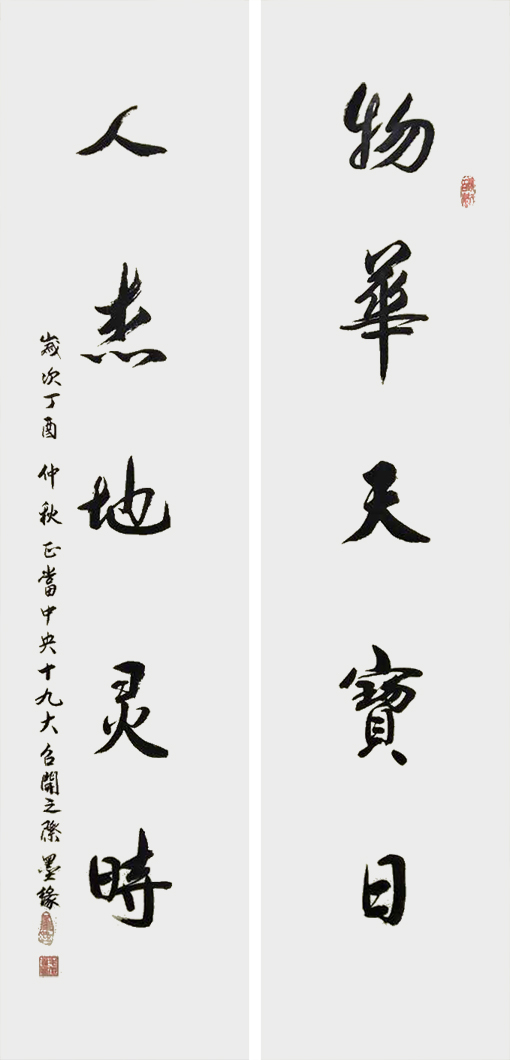 物華天寶日
人杰地灵時
歲次丁酉仲秋正當中央十九大召開之際墨緣